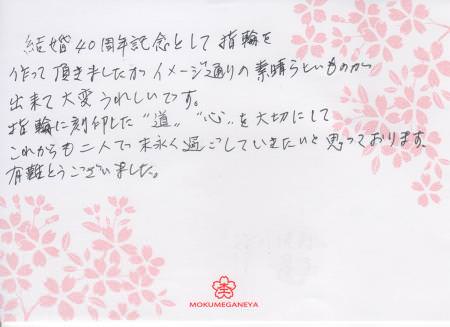 結婚40周年記念として指輪を
作って頂きましたがイメージ通りの素晴らしいものが
出来て大変うれしいです。
指輪に刻印した"道"、"心"を大切にして
これからも二人で末永く過ごしていきたいと思っております。
有難とうございました。
MOKUMEGANEYA